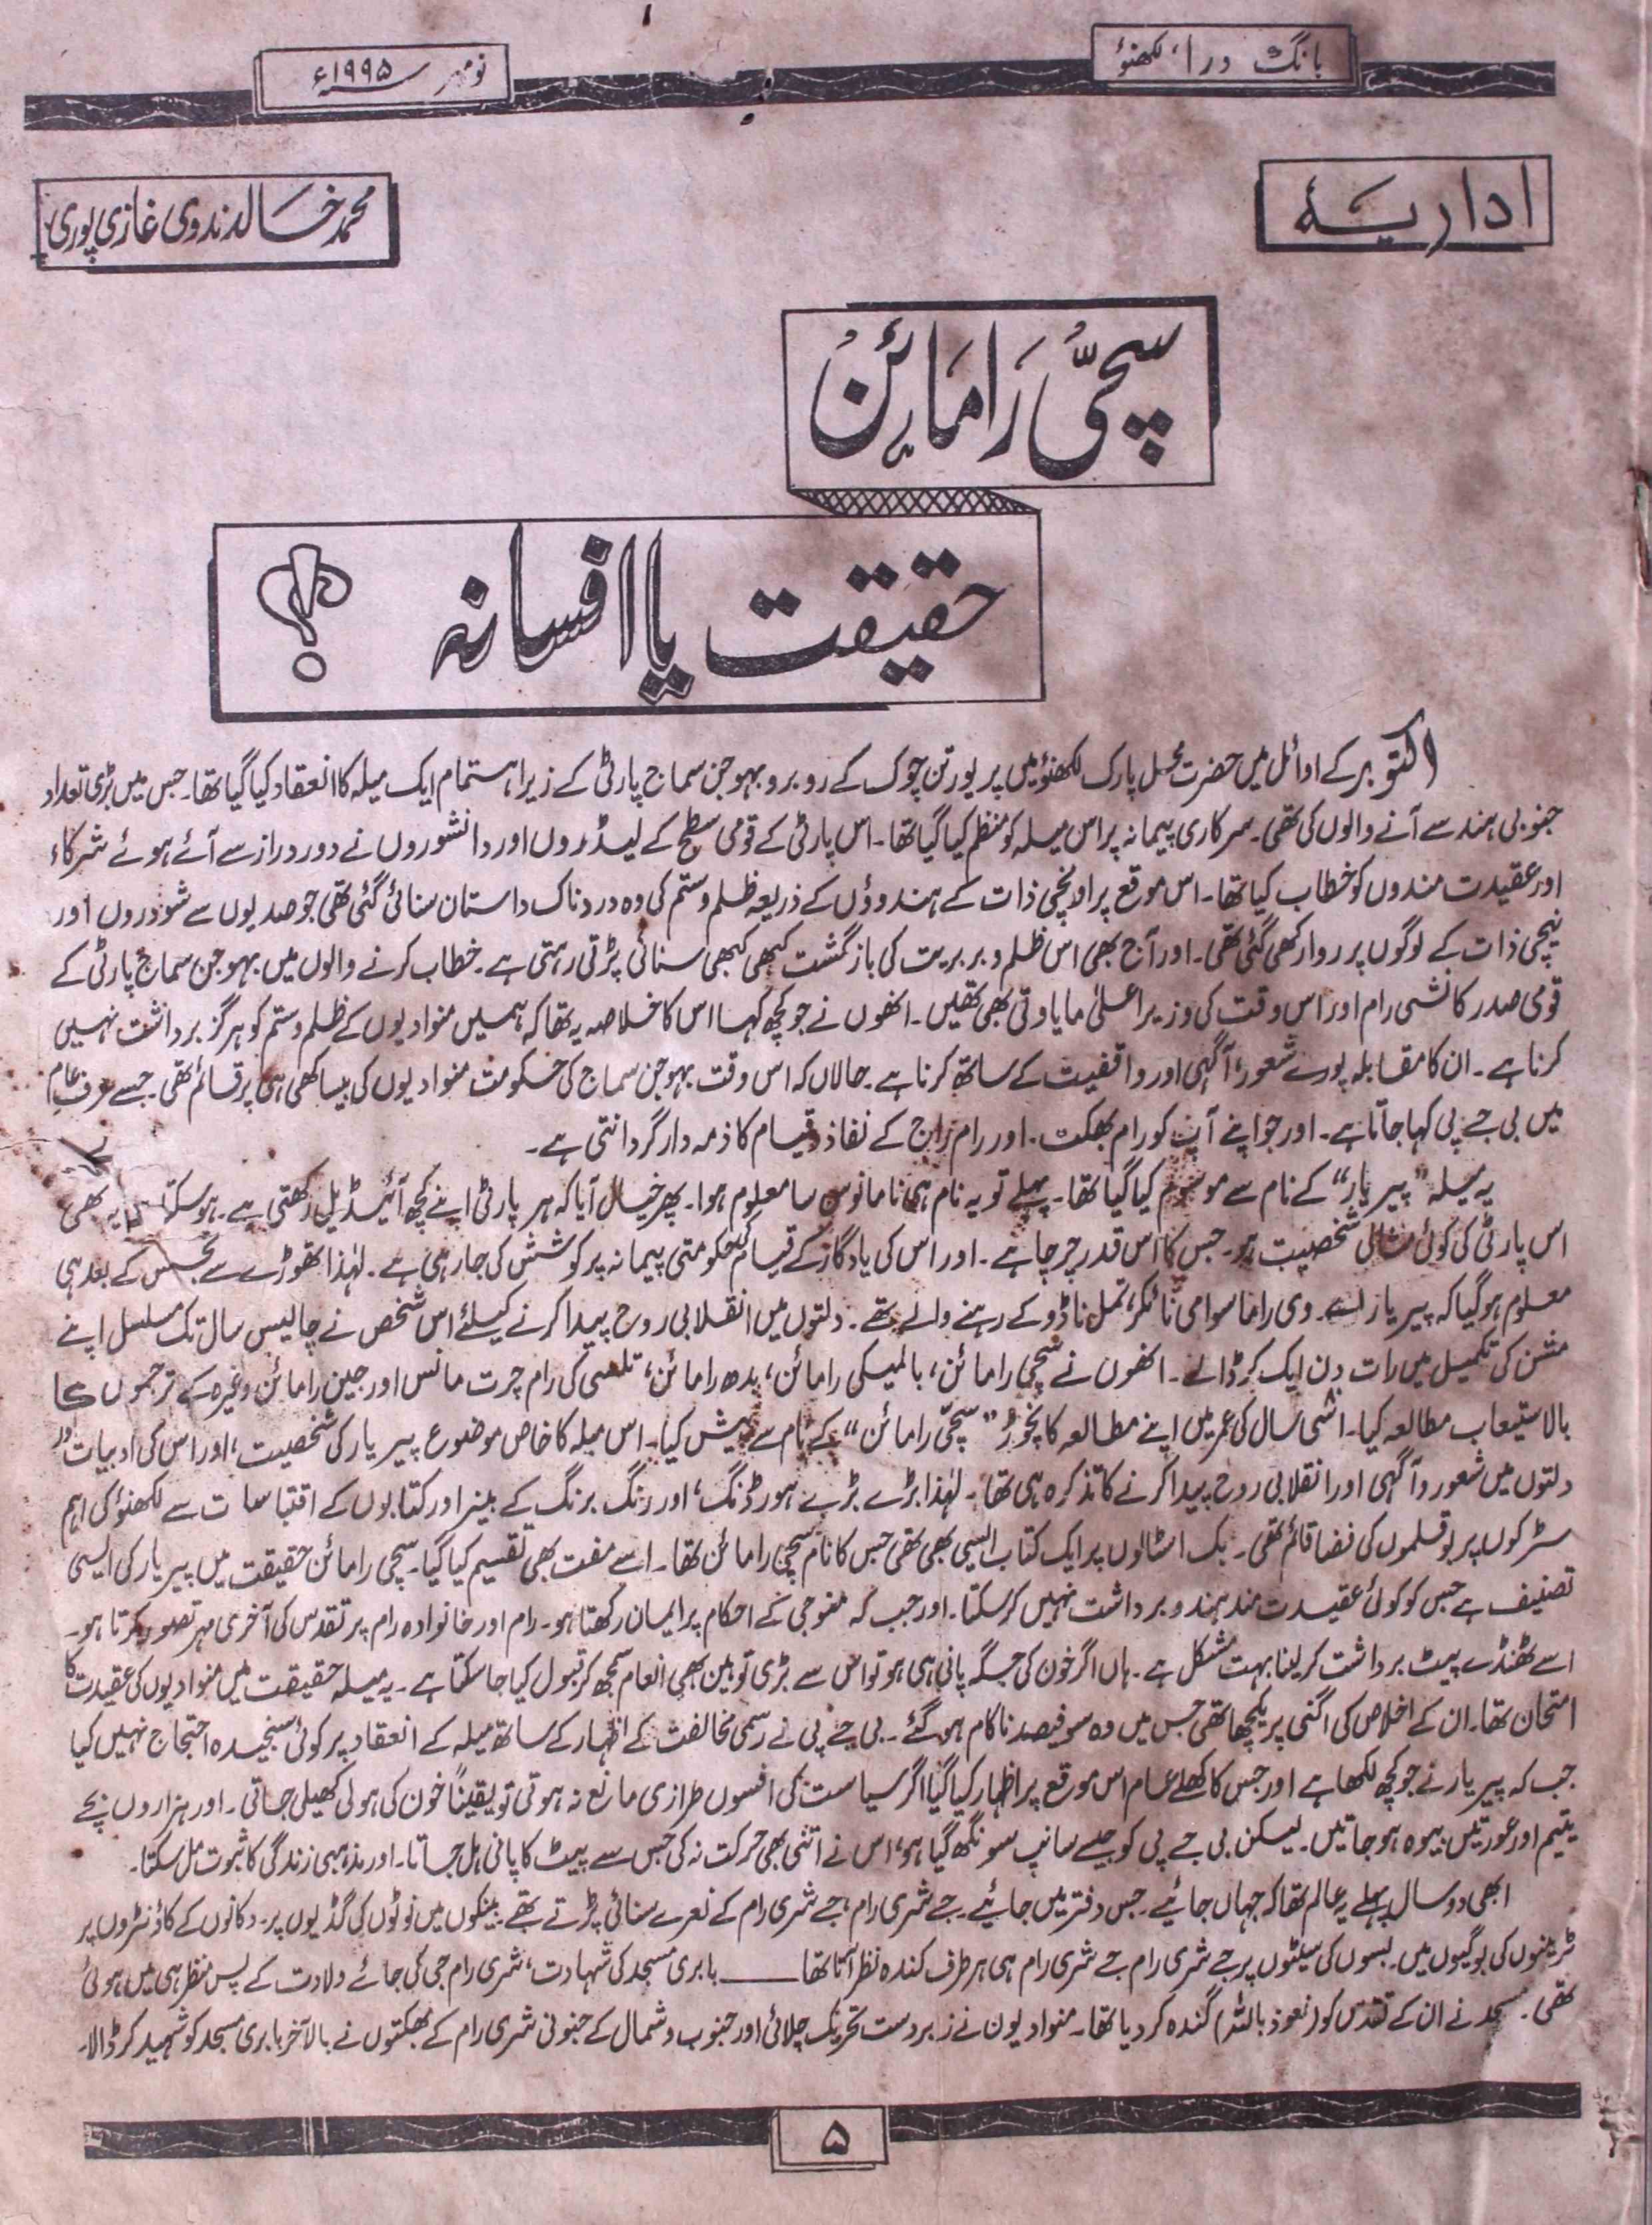 بانگ درا، لکھنؤ
نومبر ۱۹۹۵ء
اداریہ
محمد خالد ندوی غازی پوری
سچّی رامائن
حقیقت یا افسانہ ؟!
اکتوبر کے اوائل میں حضرت محل پارک لکھنؤ میں پریورتن چوک کے روبرو بہوجن سماج پارٹی کے زیر اہتمام ایک میلہ کا انعقاد کیا گیا تھا۔ جس میں بڑی تعداد
جنوبی ہند سے آنے والوں کی تھی۔ سرکاری پیمانہ پر اس میلہ کو منظم کیا گیا تھا۔ اس پارٹی کے قومی سطح کے لیڈروں اور دانشوروں نے دور دراز سے آئے ہوئے شرکاء
اور عقیدت مندوں کو خطاب کیا تھا۔ اس موقع پر اونچی ذات کے ہندوؤں کے ذریعہ ظلم و ستم کی وہ دردناک داستان سنائی گئی تھی جو صدیوں سے شودروں اور
نیچی ذات کے لوگوں پر روا رکھی گئی تھی۔ اور آج بھی اس ظلم و بربریت کی بازگشت کبھی کبھی سنائی پڑتی رہتی ہے۔ خطاب کرنے والوں میں بہوجن سماج پارٹی کے
قومی صدر کانشی رام اور اس وقت کی وزیر اعلیٰ مایاوتی بھی تھیں۔ انھوں نے جو کچھ کہا اس کا خلاصہ یہ تھا کہ ہمیں منوادیوں کے ظلم و ستم کو ہرگز برداشت نہیں
کرنا ہے۔ ان کا مقابلہ پورے شعور، آگہی اور واقفیت کے ساتھ کرنا ہے۔ حالاں کہ اس وقت بہوجن سماج کی حکومت منوادیوں کی بیساکھی ہی پر قائم تھی۔ جسے عرف عام
میں بی جے پی کہا جاتا ہے۔ اور جو اپنے آپ کو رام بھکت۔ اور رام راج کے نفاذ و قیام کا ذمہ دار گردانتی ہے۔
یہ میلہ "پیریار" کے نام سے موسوم کیا گیا تھا۔ پہلے تو یہ نام ہی نامانوس سا معلوم ہوا۔ پھر خیال آیا کہ ہر پارٹی اپنے کچھ آئیڈیل رکھتی ہے۔ ہو سکتا یہ بھی
اس پارٹی کی کوئی مثالی شخصیت ہو۔ جس کا اس قدر چرچا ہے۔ اور اس کی یادگار کے قیام کی حکومتی پیمانہ پر کوشش کی جارہی ہے۔ لہٰذا تھوڑے سے تجسس کے بعد ہی
معلوم ہوگیا کہ پیریار ای۔ وی راما سوامی نائکر، تمل ناڈو کے رہنے والے تھے۔ دلتوں میں انقلابی روح پیدا کرنے کیلئے اس شخص نے چالیس سال تک مسلسل اپنے
مشن کی تکمیل میں رات دن ایک کر ڈالے۔ انھوں نے سچی رامائن، بالمیکی رامائن، بدھ رامائن، تلسی کی رام چرت مانس اور جین رامائن وغیرہ کے ترجموں کا
بالاستیعاب مطالعہ کیا۔ اسّی سال کی عمر میں اپنے مطالعہ کا نچوڑ "سچّی رامائن" کے نام سے پیش کیا۔ اس میلہ کا خاص موضوع پیریار کی شخصیت، اور اس کی ادبیات اور
دلتوں میں شعور و آگہی اور انقلابی روح پیدا کرنے کا تذکرہ ہی تھا۔ لہٰذا بڑے بڑے ہورڈنگ، اور رنگ برنگ کے بینر اور کتابوں کے اقتباسات سے لکھنؤ کی اہم
سڑکوں پر بوقلموں کی فضا قائم تھی۔ بک اسٹالوں پر ایک کتاب ایسی بھی تھی جس کا نام سچی رامائن تھا۔ اسے مفت بھی تقسیم کیا گیا۔ سچی رامائن حقیقت میں پیریار کی ایسی
تصنیف ہے جس کو کوئی عقیدت مند ہندو برداشت نہیں کر سکتا۔ اور جب کہ منوجی کے احکام پر ایمان رکھتا ہو۔ رام اور خانوادہ رام پر تقدس کی آخری مہر تصور کرتا ہو۔
اسے ٹھنڈے پیٹ برداشت کر لینا بہت مشکل ہے۔ ہاں اگر خون کی جگہ پانی ہی ہو تو اس سے بڑی توہین بھی انعام سمجھ کر قبول کیا جا سکتا ہے۔ یہ میلہ حقیقت میں منوادیوں کی عقیدت کا
امتحان تھا۔ ان کے اخلاص کی اگنی پریکچھا تھی جس میں وہ سو فیصد ناکام ہو گئے۔ بی جے پی نے رسمی مخالفت کے اظہار کے ساتھ میلہ کے انعقاد پر کوئی سنجیدہ احتجاج نہیں کیا
جب کہ پیریار نے جو کچھ لکھا ہے اور جس کا کھلے عام اس موقع پر اظہار کیا گیا اگر سیاست کی افسوں طرازی مانع نہ ہوتی تو یقیناً خون کی ہولی کھیلی جاتی۔ اور ہزاروں بچے
یتیم اور عورتیں بیوہ ہو جاتیں۔ لیکن بی جے پی کو جیسے سانپ سونگھ گیا ہو، اس نے اتنی بھی حرکت نہ کی جس سے پیٹ کا پانی ہل جاتا۔ اور مذہبی زندگی کا ثبوت مل سکتا۔
ابھی دو سال پہلے یہ عالم تھا کہ جہاں جائیے۔ جس دفتر میں جائیے۔ جے شری رام، جے شری رام کے نعرے سنائی پڑتے تھے۔ بینکوں میں نوٹوں کی گڈیوں پر۔ دکانوں کے کاؤنٹروں پر
ٹرینوں کی بوگیوں میں۔ بسوں کی سیٹوں پر جے شری رام جے شری رام ہی ہر طرف کندہ نظر آتا تھا ـــــ بابری مسجد کی شہادت، شری رام جی کی جائے ولادت کے پس منظر ہی میں ہوئی
تھی۔ مسجد نے ان کے تقدس کو (نعوذ باللہ) گندہ کر دیا تھا۔ منوادیون نے زبردست تحریک چلائی اور جنوب و شمال کے جنونی شری رام کے بھکتوں نے بالآخر بابری مسجد کو شہید کر ڈالا۔
۵